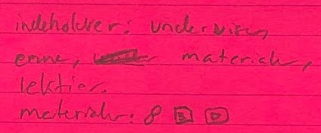 indeholder: undervisn,
emne, materiale,
lektier.
materialer: 8